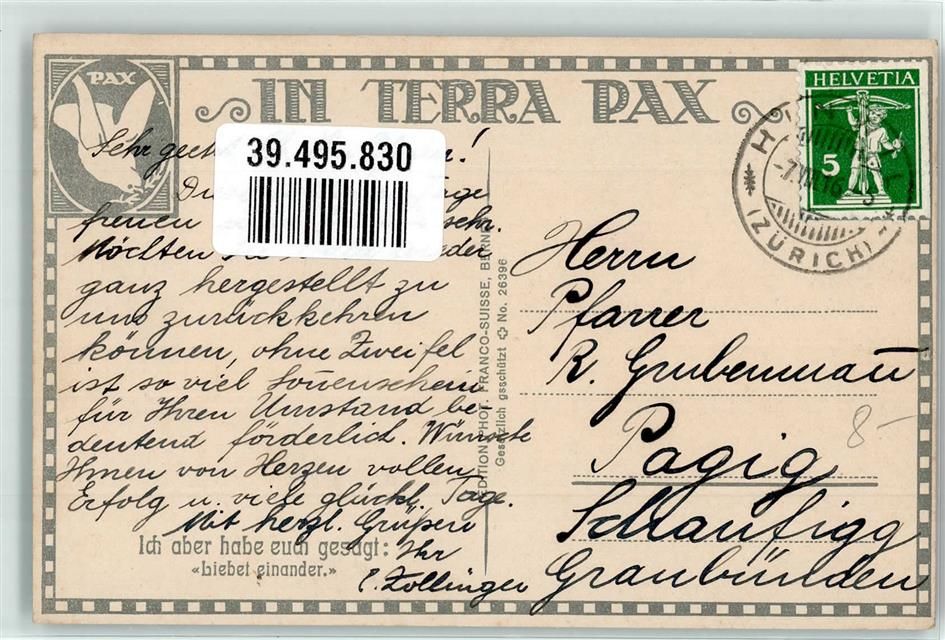 PAX
IN TERRA PAX
HELVETIA
5
(ZÜRICH)
39.495.830
Sehr
freuen
Möchten
ganz hergestellt zu
uns zurückkehren
können, ohne Zweifel
ist so viel Sonnenschein
für Ihren Umstand be
deutend förderlich. Wünsche
Ihnen von Herzen vollen
Erfolg u. viele glückl. Tage.
Mit herzl. Grüßen
Ihr
E. Zollinger
Ich aber habe euch gesagt:
«Liebet einander.»
EDITION PHOT. FRANCO-SUISSE, BERNE
Gesetzlich geschützt No. 26396
Herrn
Pfarrer
R. Grubenmann
8-
Pagig
Schanfigg
Graubünden